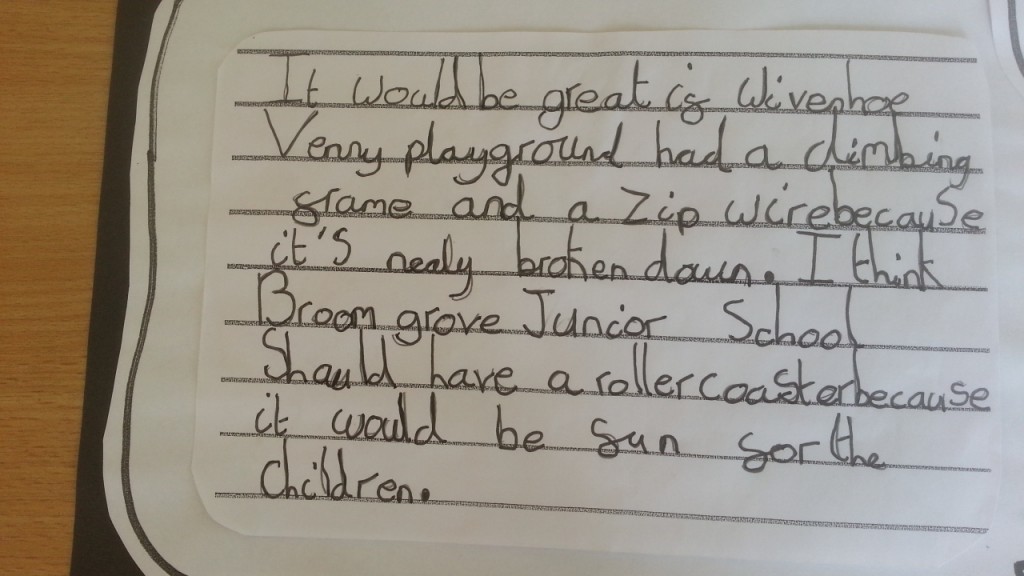 It would be great if Wivenhoe
Venny playground had a climbing
frame and a zip wire because
it's nealy broken down. I think
Broom grove Junior School
Should have a roller coaster because
it would be fun for the
Children.